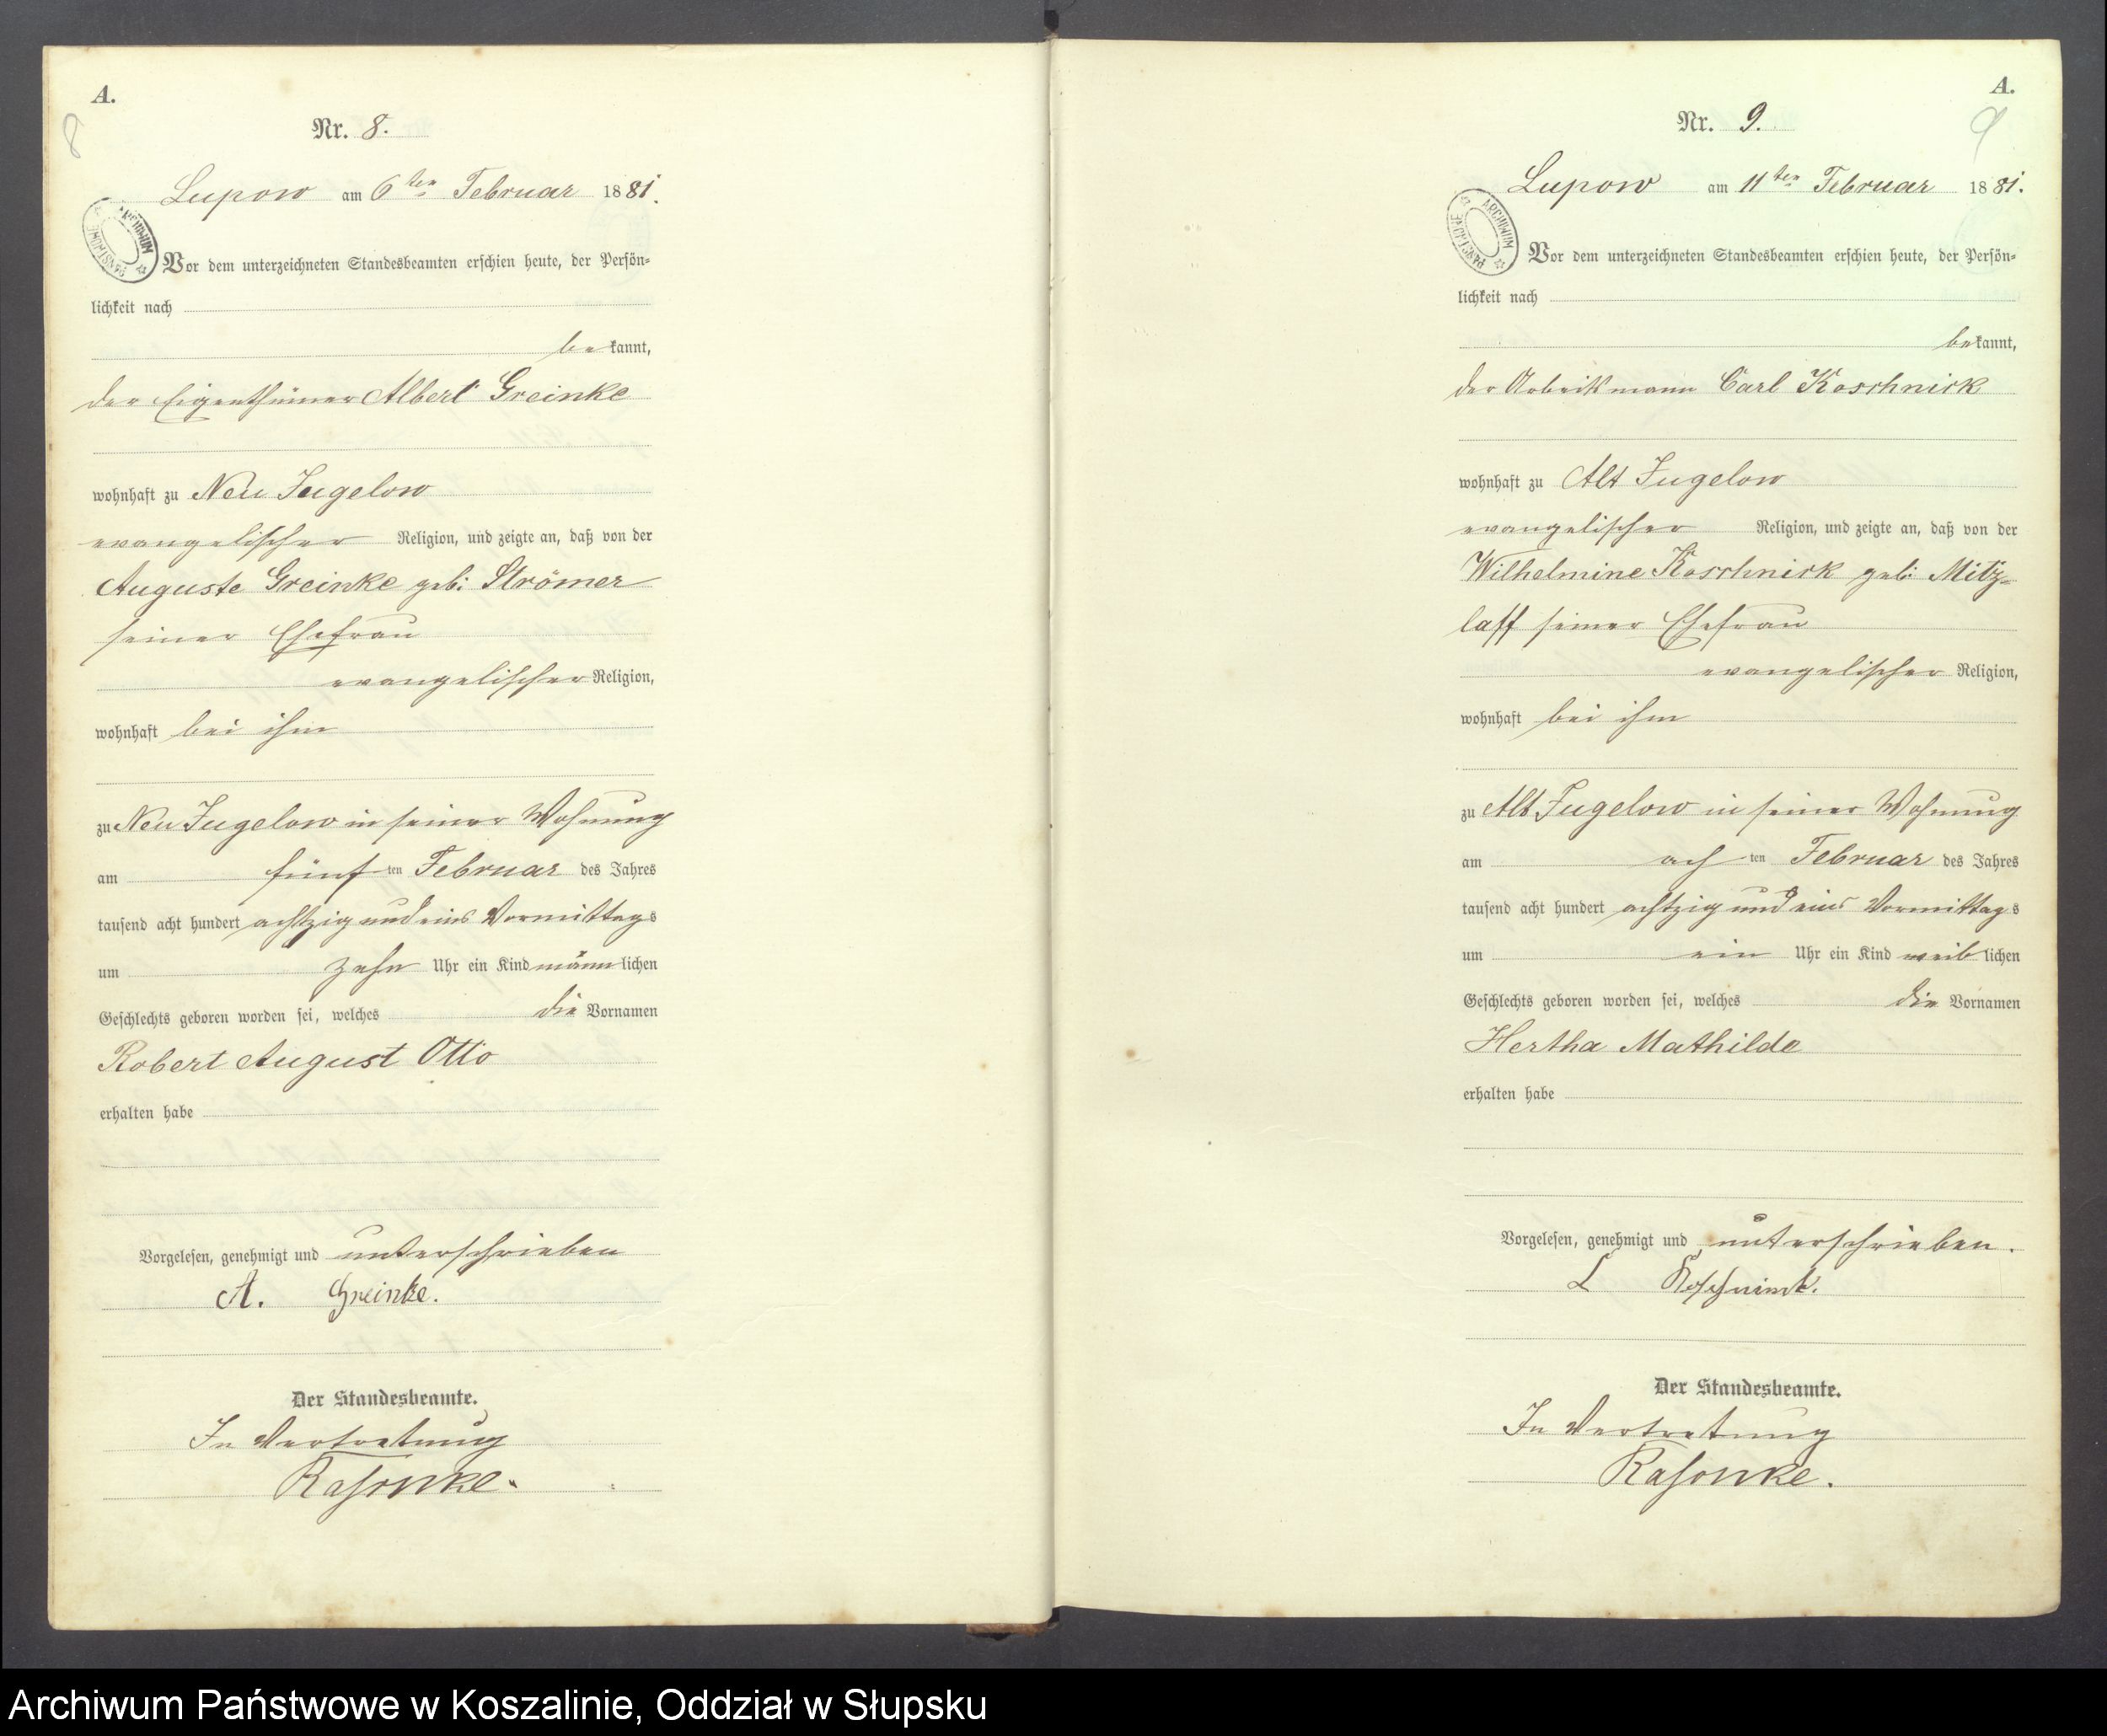 A.
8
Nr. 8.
Lupow am 6ten Februar 1881.
ARCHIWUM PAŃSTWOWE
Vor dem unterzeichneten Standesbeamten erschien heute, der Persön-
lichkeit nach
bekannt,
der Eigenthümer Albert Greinke
wohnhaft zu Neu Jugelow
evangelischer Religion, und zeigte an, daß von der
Auguste Greinke geb: Strömer
seiner Ehefrau
evangelischer Religion,
wohnhaft bei ihm
zu Neu Jugelow in seiner Wohnung
am fünften Februar des Jahres
tausend acht hundert achtzig und eins Vormittags
um zehn Uhr ein Kind männlichen
Geschlechts geboren worden sei, welches die Vornamen
Robert August Otto
erhalten habe
Vorgelesen, genehmigt und unterschrieben
A. Greinke.
Der Standesbeamte.
In Vertretung
A.
9
Nr. 9.
Lupow am 11ten Februar 1881.
ARCHIWUM PAŃSTWOWE
Vor dem unterzeichneten Standesbeamten erschien heute, der Persön-
lichkeit nach
bekannt,
der Arbeitsmann Carl Koschnick
wohnhaft zu Alt Jugelow
evangelischer Religion, und zeigte an, daß von der
Wilhelmine Koschnick geb: Mitz-
laff seiner Ehefrau
evangelischer Religion,
wohnhaft bei ihm
zu Alt Jugelow in seiner Wohnung
am achten Februar des Jahres
tausend acht hundert achtzig und eins Vormittags
um ein Uhr ein Kind weiblichen
Geschlechts geboren worden sei, welches die Vornamen
Hertha Mathilde
erhalten habe
Vorgelesen, genehmigt und unterschrieben.
Koschnick.
Der Standesbeamte.
In Vertretung
Archiwum Państwowe w Koszalinie, Oddział w Słupsku